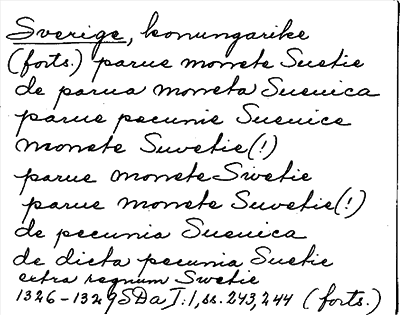 Sverige, konungarike
(forts.) parue monete Suetie
de parua moneta Sueuica
parue pecunie Sueuice
monete Suvetie(!)
parue monete Sivetie
parue monete Suvetie(!)
de pecunia Sueuica
de dicta pecunia Suetie
extra regnum Swetie
1326-1329 SDa I:1, ss. 243, 244 (forts.)